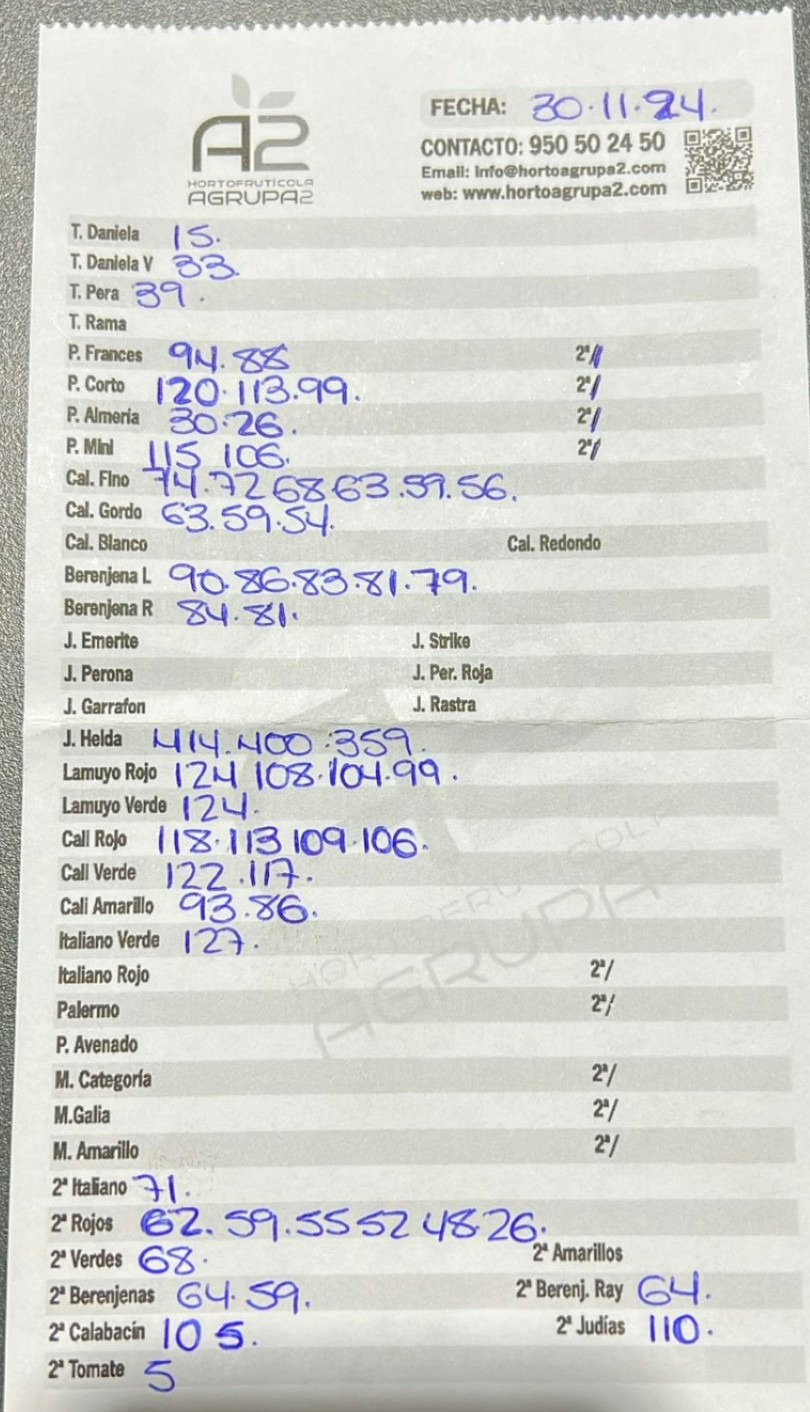 A2
HORTOFRUTICOLA
AGRUPA2
FECHA: 30.11.24.
CONTACTO: 950 50 24 50
Email: info@hortoagrupa2.com
web: www.hortoagrupa2.com
T. Daniela 15.
T. Daniela V 33.
T. Pera 39.
T. Rama
P. Frances 94.88 2ª/
P. Corto 120.113.99. 2ª/
P. Almería 30.26. 2ª/
P. Mini 115 106. 2ª/
Cal. Fino 74.72 68 63.59.56.
Cal. Gordo 63.59.54.
Cal. Blanco Cal. Redondo
Berenjena L 90.86.83.81.79.
Berenjena R 84.81.
J. Emerite J. Strike
J. Perona J. Per. Roja
J. Garrafon J. Rastra
J. Helda 414.400.359.
Lamuyo Rojo 124 108.104.99.
Lamuyo Verde 124.
Cali Rojo 118.113 109.106.
Cali Verde 122.117.
Cali Amarillo 93.86.
Italiano Verde 127.
Italiano Rojo 2ª/
Palermo 2ª/
P. Avenado
M. Categoría 2ª/
M.Galia 2ª/
M. Amarillo 2ª/
2ª Italiano 71.
2ª Rojos 62.59.55 52 48.26.
2ª Verdes 68. 2ª Amarillos
2ª Berenjenas 64.59. 2ª Berenj. Ray 64.
2ª Calabacín 10 5. 2ª Judías 110.
2ª Tomate 5
HORTOFRUTICOLA
AGRUPA